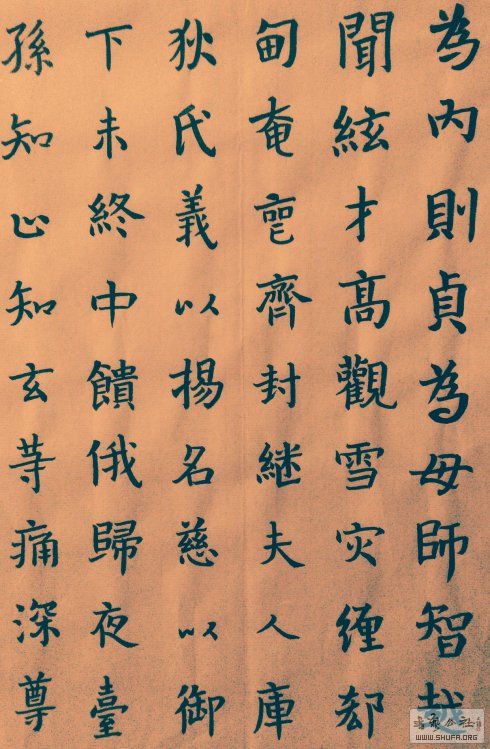 為內則貞為母師智越
聞絃才高觀雪灾纏却
甸奄齊封継夫人庫
狄氏義以揚名慈以御
下未終中饋俄歸夜臺
孫知止知玄等痛深尊
公社
WWW.SHUFA.ORG